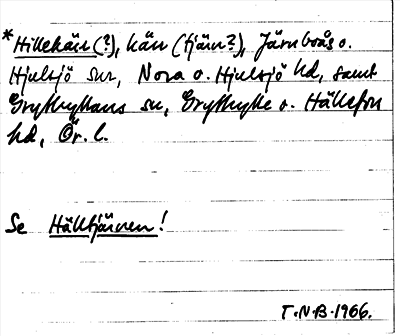 *Hillekärr(?), kärr (tjärn?), Järnboås o.
Hjulsjö snr, Nora o. Hjulsjö hd, samt
Grythyttans sn, Grythytte o. Hällefors
hd, Ör. l.
Se Hälltjärnen!
T.N.B. 1966.